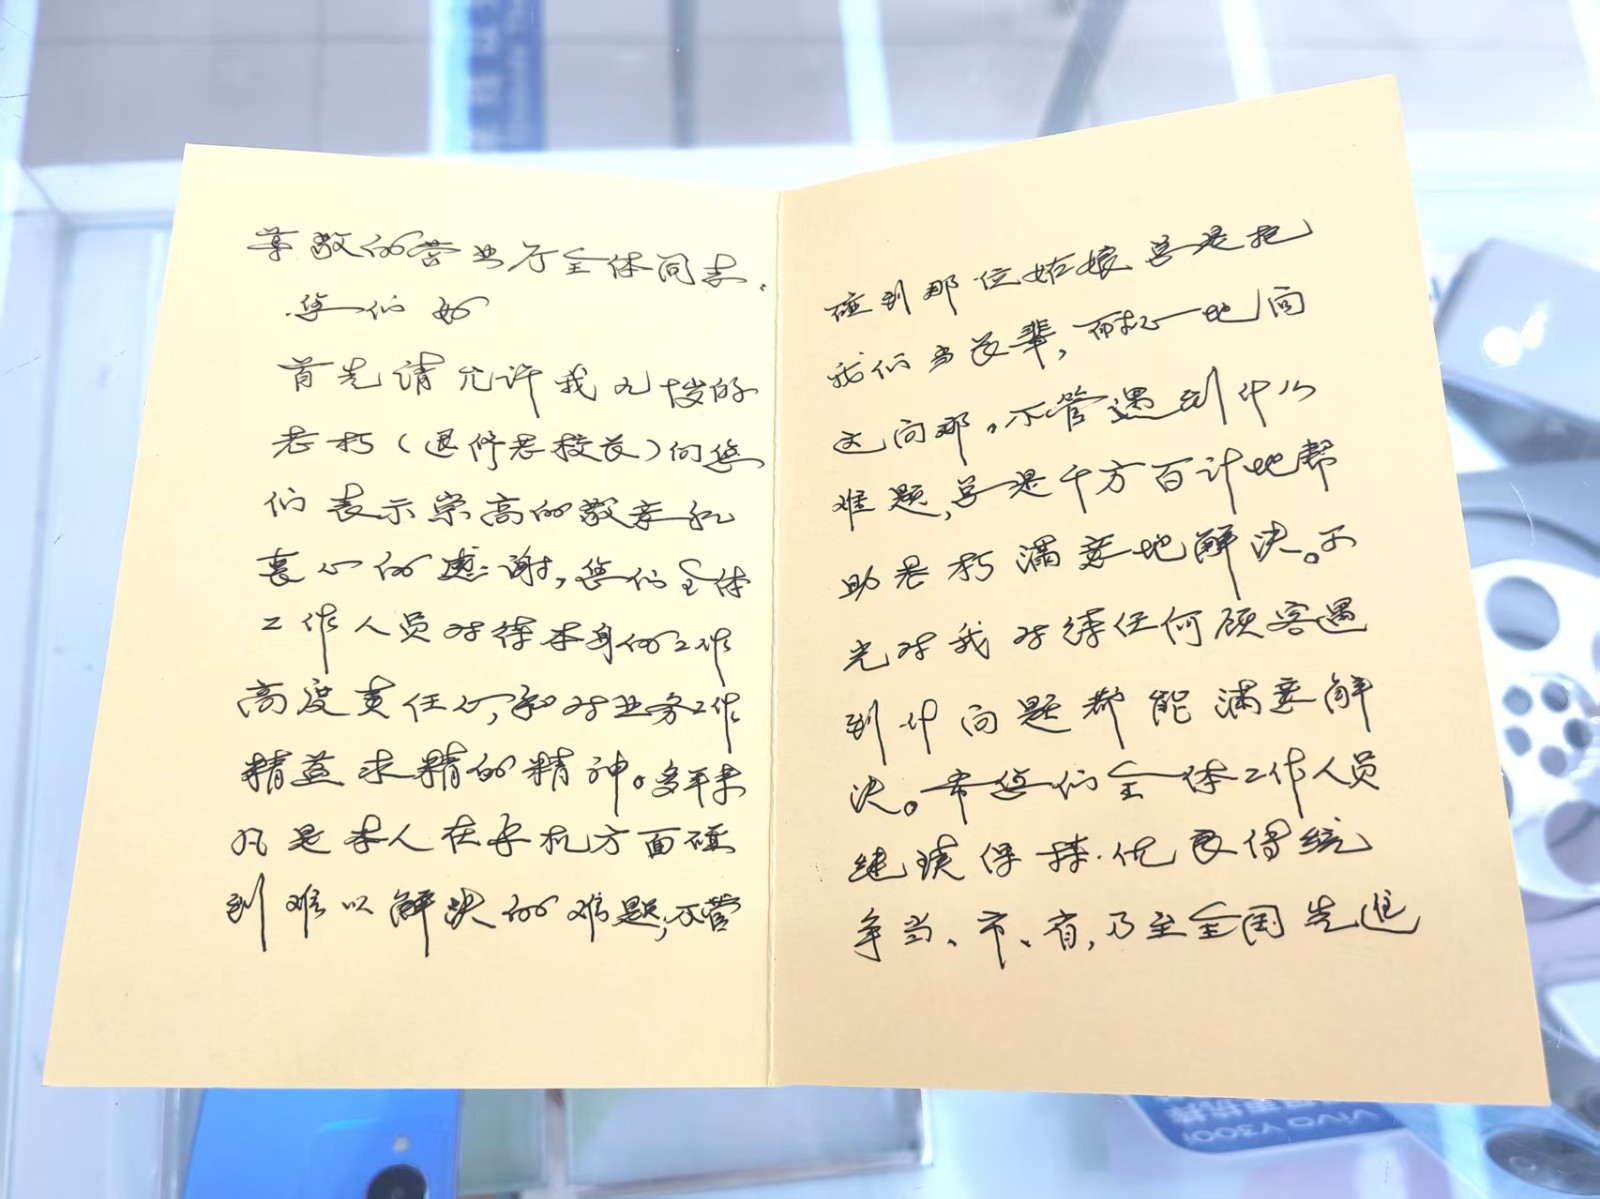 尊敬的营业厅全体同志:
您们好
首先请允许我九十岁的
老朽(退休老校长)向您
们表示崇高的敬意和
衷心的感谢,您们全体
工作人员对待本身的工作
高度责任心,和对业务工作
精益求精的精神。多年来
凡是本人在手机方面碰
到难以解决的难题,不管
碰到那位姑娘总是把
我们当长辈,而且一地问
这问那。不管遇到什么
难题,总是千方百计地帮
助老朽满意地解决。不
光对我对待任何顾客遇
到什问题都能满意解
决。希您们全体工作人员
继续保持优良传统
争当、市、省,乃至全国先进
vivo Y300i